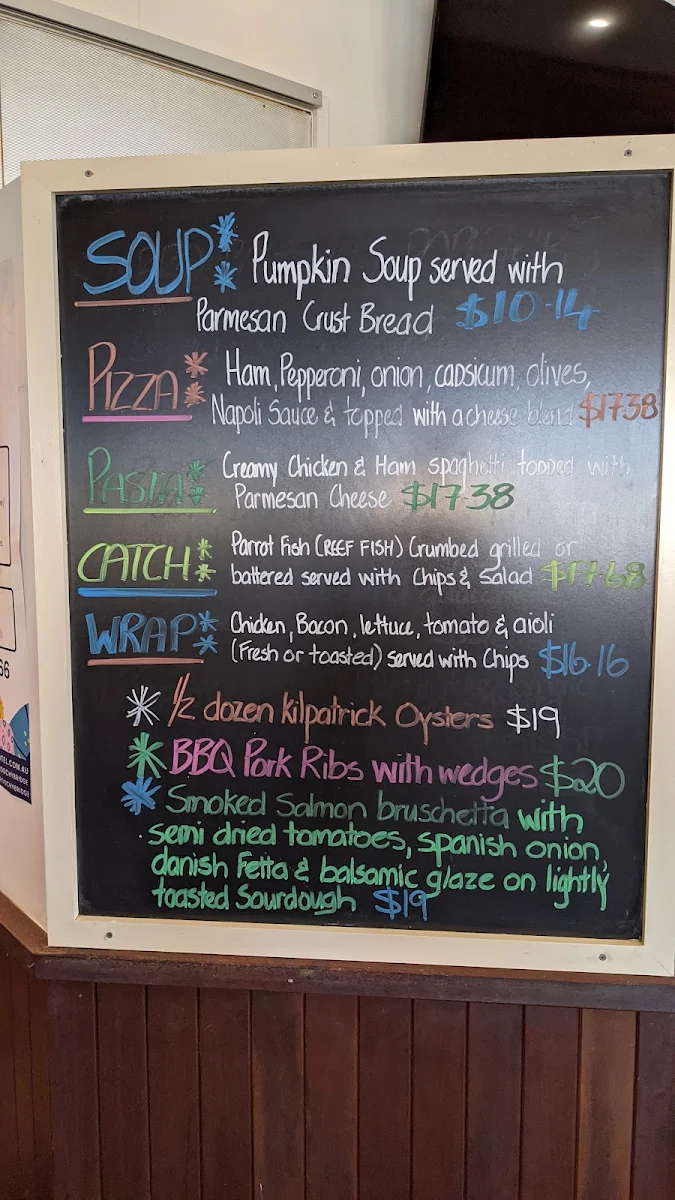 SOUP: Pumpkin Soup served with
Parmesan Crust Bread $10.14
PIZZA: Ham, Pepperoni, onion, capsicum, olives,
Napoli Sauce & topped with a cheese blend $17.38
PASTA: Creamy Chicken & Ham spaghetti topped with
Parmesan Cheese $17.38
CATCH: Parrot Fish (REEF FISH) Crumbed grilled or
battered served with Chips & Salad $17.68
WRAP: Chicken, Bacon, lettuce, tomato & aioli
(Fresh or toasted) served with Chips $16.16
1/2 dozen kilpatrick Oysters $19
BBQ Pork Ribs with wedges $20
Smoked Salmon bruschetta with
semi dried tomatoes, spanish onion,
danish Fetta & balsamic glaze on lightly
toasted Sourdough $19